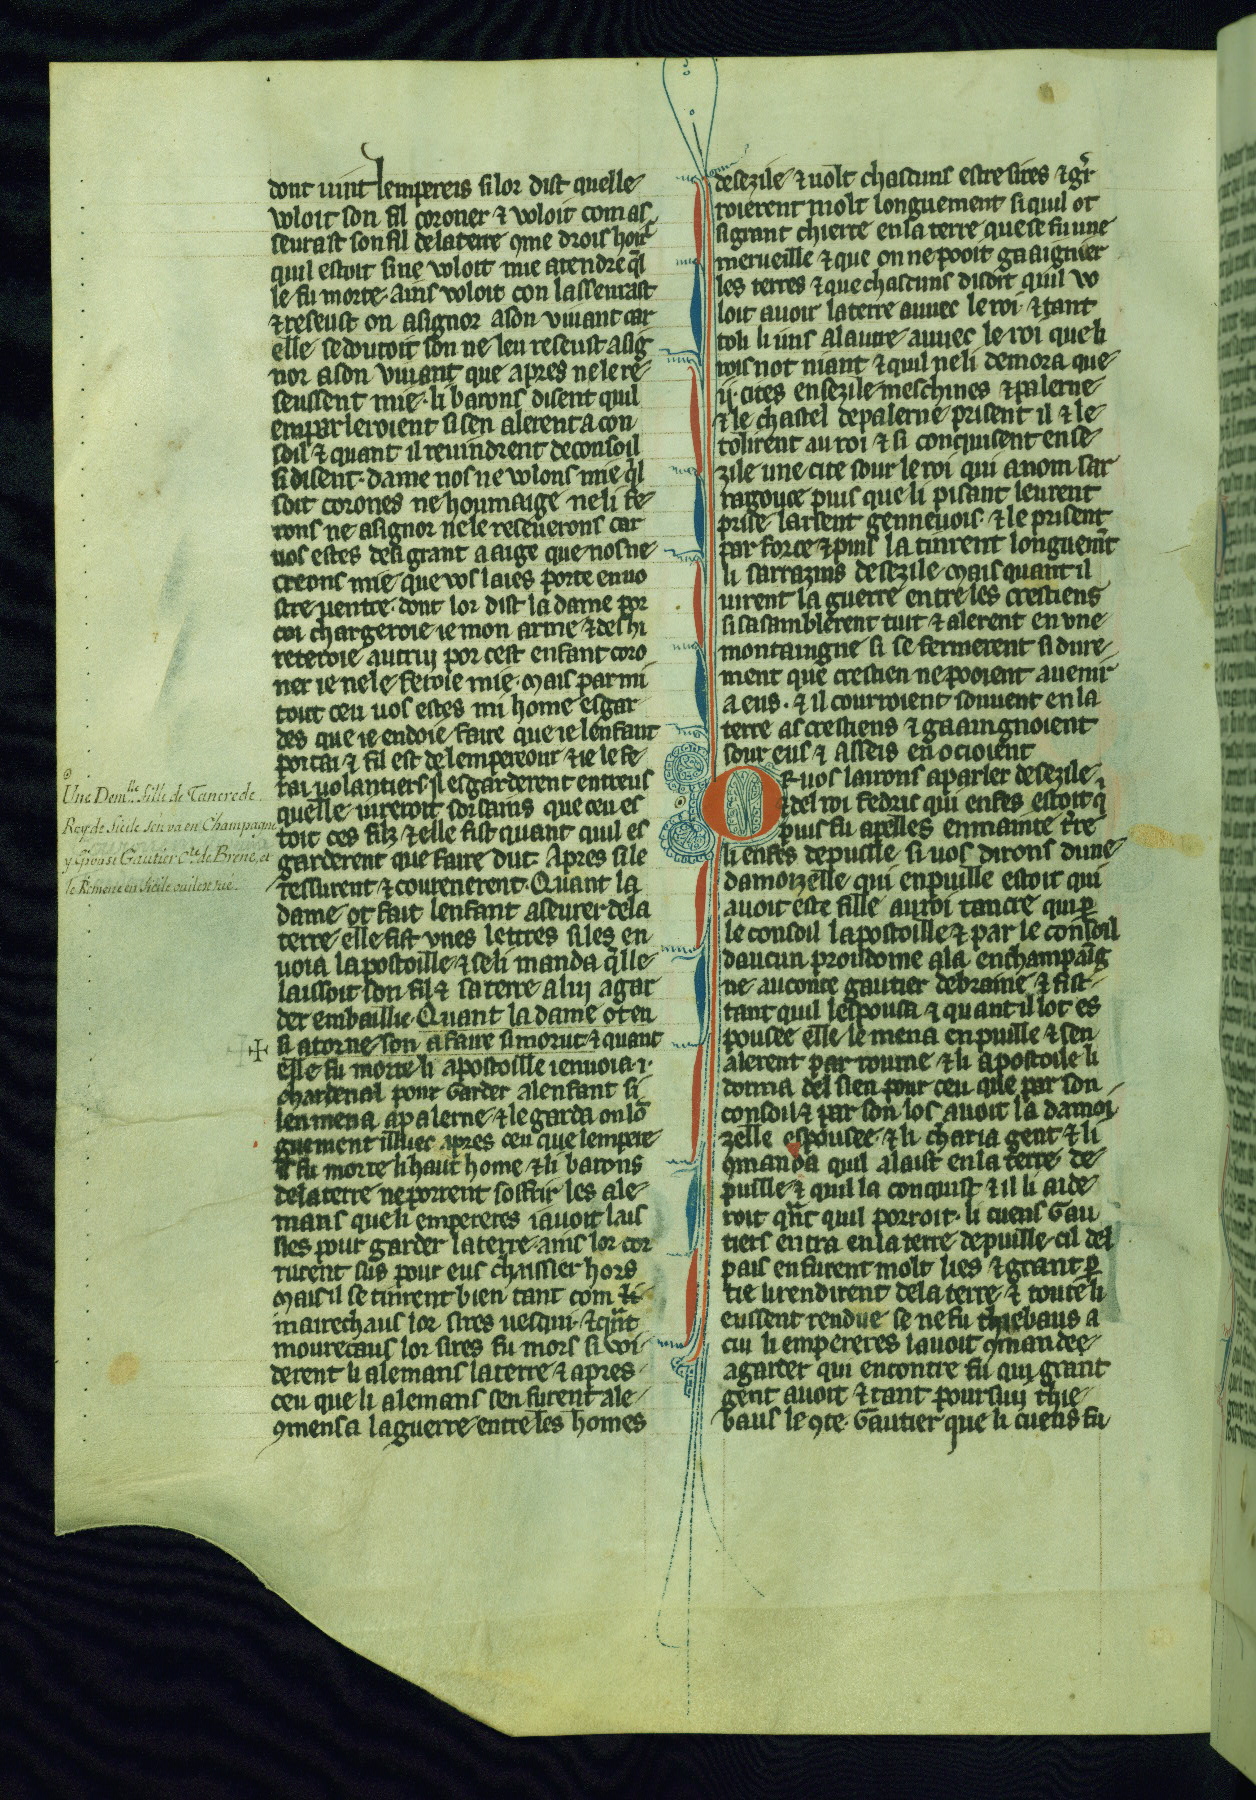 dont vint lempereris si lor dist quelle
voloit son fil coroner ⁊ voloit com as
seurast son fil de la terre 9me drois hoir
quil estoit si ne voloit mie atendre q̃l
le fu morte. Ains voloit con lasseurast
⁊ receust on a signor a son vivant car
elle se doutoit son ne leu receust a sig
nor a son vivant que apres ne le re
ceussent mie. li barons disent quil
emparleroient si sen alerent a con
soil ⁊ quant il revindrent de consoil
si disent. dame nos ne volons mie q̃l
soit corones ne houmaige ne li fe
rons ne a signor ne le receverons car
vos estes de si grant aaige que nos ne
creons mie que vos laies porte en vo
stre ventre. dont lor dist la dame por
coi chargeroie ie mon arme ⁊ deshi
reteroie autrui por cest enfant coro
ner ie ne le feroie mie. Mais par mi
tout ceu vos estes mi home esgar
des que ie en doie faire que ie lenfant
portai ⁊ fil est de lempereour ⁊ ie le fe
rai volantiers. Il esgarderent entreus
quelle iureroit sor sains que ceu es
toit ces filz ⁊ elle fist quant quil es
garderent que faire dut. Apres si le
ressurent ⁊ courenerent. Quant la
dame ot fait lenfant aseurer de la
terre elle fist unes lettres si les en
voia lapostoille ⁊ se li manda q̃lle
laissoit son fil ⁊ sa terre a lui a gar
der em baillie. Quant la dame ot en
si atorne son afaire si morut ⁊ quant
elle fu morte li apostoille i envoia .i.
chardenal pour garder a lenfant si
len mena a palerne ⁊ le garda on lō
guement illuec apres ceu que lempere
fu morte li haut home ⁊ li barons
de la terre ne porrent soffrir les ale
mans que li empereres i avoit lais
sies pour garder la terre. ains lor cor
rurent sus pour eus chaissier hors
Mais il se tinrent bien tant com
mairechaus lor sires vesqui. ⁊ qñt
mourecaus lor sires fu mors si voi
derent li alemans la terre ⁊ apres
ceu que li alemans sen furent ale
9mensa la guerre entre les homes
de sezile ⁊ volt chascuns estre sires ⁊ g̃r
roierent molt longuement si quil ot
si grant chierte en la terre que se fu une
merveille ⁊ que on ne pooit gaaignier
les terres ⁊ que chascuns disoit quil vo
loit avoir la terre avvec le roi. ⁊ tant
toli li uns a lautre avvec le roi que li
rois not niant ⁊ quil ne li demora que
.ij. cites en sezile meschines ⁊ palerne
⁊ le chastel de palerne prisent il ⁊ le
tolirent au roi ⁊ si conquisent en se
zile une cite sour le roi qui a nom sar
ragouce puis que li pisant leurent
prise larsent gennevois. ⁊ le prisent
par force ⁊ puis la tinrent longuem̃t
li sarrazins de sezile. Mais quant il
virent la guerre entre les crestiens
si sasamblerent tuit ⁊ alerent en une
montaingne si se fermerent si dure
ment que crestien ne pooient avenir
a eus. ⁊ il courroient souvent en la
terre as crestiens ⁊ gaaingnoient
sour eus ⁊ asseis en ocioient
Or vos lairons a parler de sezile
⁊ del roi fedric qui enfes estoit q̃
puis fu apelles en mainte t̃re
li enfes de puille si vos dirons dune
damoizelle qui en puille estoit qui
avoit este fille au roi tancre qui p̱
le consoil lapostoille ⁊ par le consoil
daucun proisdome ala en champaig
ne au conte gautier de braine ⁊ fist
tant quil lespousa ⁊ quant il lot es
pousee elle le mena en puille ⁊ sen
alerent par roume ⁊ li apostoile li
donna del sien pour ceu que par son
consoil ⁊ par son los avoit la damoi
zelle espousee ⁊ li charia gent ⁊ li
9manda quil alaist en la terre de
puille ⁊ quil la conquist ⁊ il li aide
roit qñt quil porroit. li cuens Gau
tiers entra en la terre de puille. cil del
pais en furent molt lies ⁊ grant p̱
tie li rendirent de la terre ⁊ toute li
eussent rendue se ne fu thiebaus a
cui li empereres lavoit 9mandee
a garder qui encontre fu qui grant
gent avoit ⁊ tant poursui thie
baus le 9te. Gautier que li cuens fu
Une Dem.lle fille de Tancrede
Roy de Sicile s'en va en Champagne
y Epousa Gautier C.te de Brene, et
le Remene en Sicile